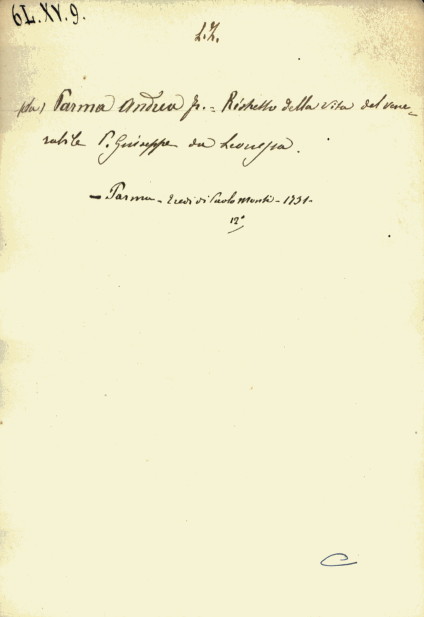 6L.XV.9.
L.Z.
(da) Parma Andrea fr. = Ristretto della vita del vene=
rabile P. Giuseppe da Leonessa.
— Parma - Eredi di Paolo Monti - 1731-
12°
C